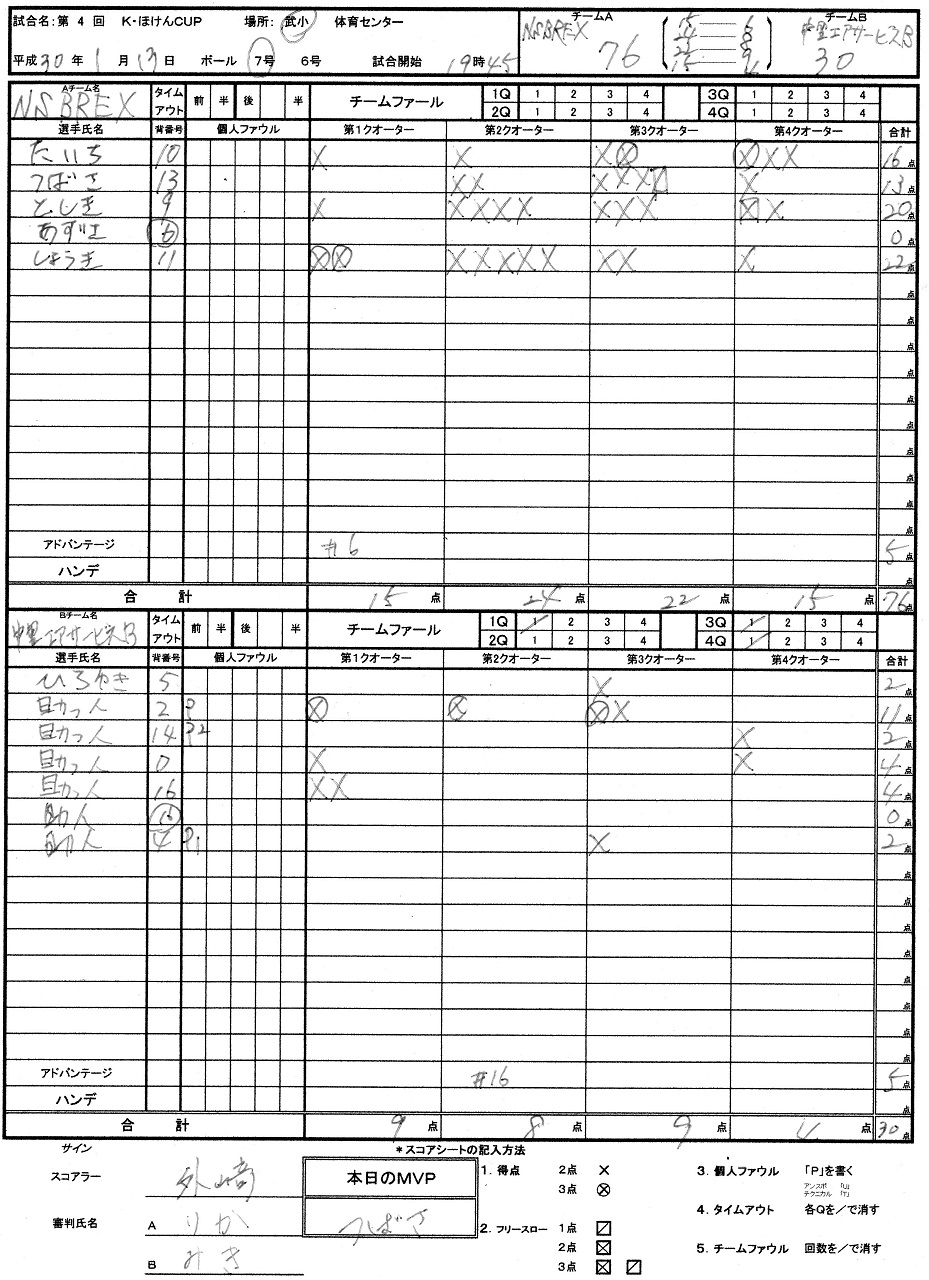 試合名:第 4 回 K-ほけんCUP 場所: 武小 体育センター
平成30年 1月 13日 ボール 7号 6号 試合開始 19時45
チームA NSBREX 76
15 6
24 8
22 9
15 4
チームB 中里エアサービスB 30
Aチーム名 NSBREX タイムアウト 前 半 後 半 チームファール 1Q 1 2 3 4 3Q 1 2 3 4
2Q 1 2 3 4 4Q 1 2 3 4
選手氏名 背番号 個人ファウル 第1クオーター 第2クオーター 第3クオーター 第4クオーター 合計
たいち 10 16点
つばさ 13 13点
としき 9 20点
あずさ 6 0点
しょうき 11 22点
点
点
点
点
点
点
点
点
点
点
アドバンテージ #6 5点
ハンデ 点
合 計 15点 24点 22点 15点 76点
Bチーム名 中里エアサービスB タイムアウト 前 半 後 半 チームファール 1Q 1 2 3 4 3Q 1 2 3 4
2Q 1 2 3 4 4Q 1 2 3 4
選手氏名 背番号 個人ファウル 第1クオーター 第2クオーター 第3クオーター 第4クオーター 合計
ひろゆき 5 2点
助っ人 2 P 11点
助っ人 14 P2 2点
助っ人 0 4点
助っ人 16 4点
助人 0点
助人 4 P1 2点
点
点
点
点
点
点
点
点
アドバンテージ #16 5点
ハンデ 点
合 計 9点 8点 9点 4点 30点
サイン
スコアラー 外崎
審判氏名 A りか
B みき
本日のMVP
つばさ
*スコアシートの記入方法
1. 得点 2点 ×
3点 ⊗
2. フリースロー 1点 ⍁
2点 ⊠
3点 ⊠ ⍁
3. 個人ファウル 「P」を書く
アンスポ 「U」
テクニカル 「T」
4. タイムアウト 各Qを/で消す
5. チームファウル 回数を/で消す